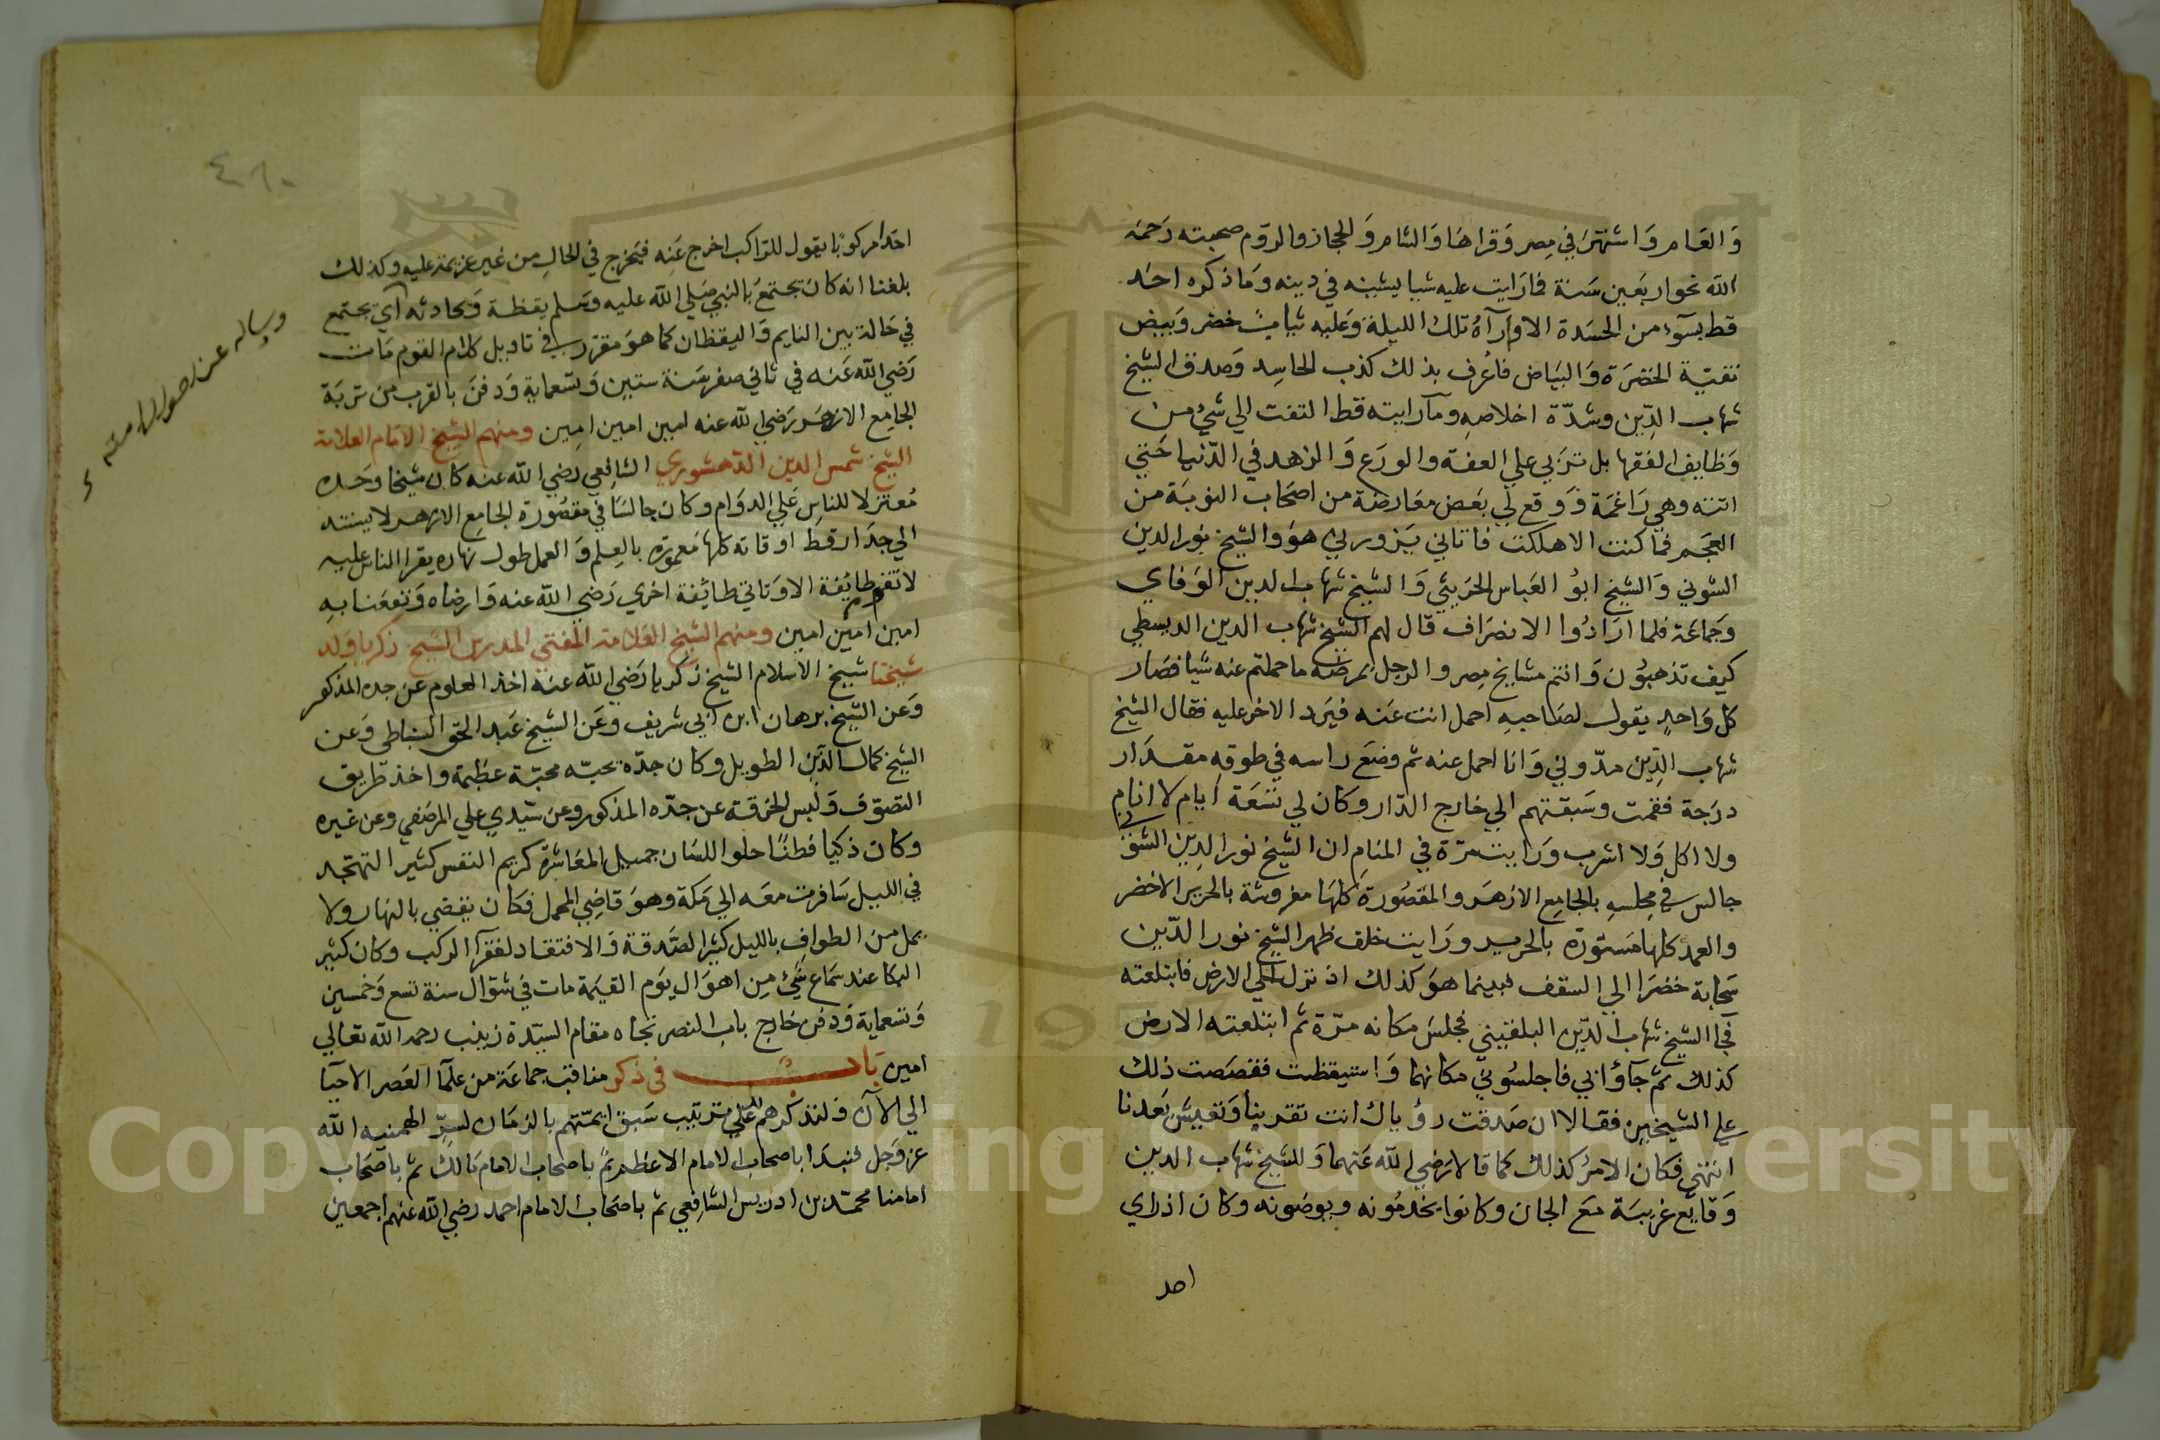 وَالعَام وَاشتهرَ في مِصر وَقراهَا وَالشام وَالحجاز والروم صحبته رَحمَه
الله نحوا ربَعين سَنة فما رَايت عليه شيا يشينه في دينه وَمَا ذكره احَد
قط بسَوء من الحسَدة الا وارآهُ تلك الليلة وَعَليه ثيابٌ خضر وَبيض
نقيّة الخضرَة وَالبيَاض فاعُرف بذلك كذب الحاسِد وَصَدق الشيخ
شهاب الدِّين وشدّة اخلاصهِ ومَا رايته قط التفت الي شيْ من
وَظايف الفقها بل تَربي علي العفة والورَع وَالزهد في الدّنيا حَتي
اتته وهي رَاغمَة وَوقع لي بَعض مَعارضة من اصحَاب النوبَة من
العجَم فما كنت الا هلكت فاتاني يَزورني هوَ والشيخ نوُر الدين
الشوني وَالشيخ ابوُ العَباس الحرَيثي وَالشيخ شهاب الدين الوَفاي
وَجَماعَة فلما ارَادُوا الانصرَاف قال لهم الشيخ شهاب الدين الديسطي
كيف تذهبوُن وَانتم مشايخ مِصر والرجل بمرضه ما حملتم عنه شيا فصَار
كل وَاحدٍ يقول لصَاحبهِ احمل انت عَنه فيَرد الاخر عليه فقال الشيخ
شهاب الدِّين مدّوني وَانا احمل عنه ثم وضعَ راسه في طوقهِ مقدَار
درَجة فقمت وسَبقتهم الي خارج الدّار وكان لي تسَعَة ايام لا انام
ولا اكل وَلا اشرب وَرَايت مَرّة في المنام ان الشيخ نور الدِين الشوني
جالس في مجلسهِ بالجامِع الازهَر والمقصُورَة كلهَا مفروشة بالحرير الاخضر
والعمد كلها مَستورَة بالحرير ورَايت خلف ظهر الشيخ نور الدّين
سَحابة خضرَا الي السقف فبينما هوَ كذلك اذ نزل الي الارض فابتلعته
فجَا الشيخ شهاب الدّين البلقيني فجلسَ مكانه مرّة ثم ابتلعته الارض
كذلك ثمّ جآؤا بي فاجلسُوني مكانهما وَاستيقظت فقصَصت ذلك
علي الشيخين فقالا ان صَدقت رؤياك انت تقربنا وَتعيش بَعدنا
انتهي فكان الامرُ كذلك كما قالا رَضي الله عَنهما وَللشيخ شهاب الدين
وَقايع غريبَة مَع الجان وكانوا يخدمُونه ويوضونه وكان اذا راي
احد
٤٦٠
احَدا مركوبًا يقول للرّاكب اخرج عَنه فيَخرج في الحالِ من غير عزيمة عليه وكذلك
بلغنا انه كان يجتمعُ بالنبي صَلي الله عليه وَسَلم يقظة وَيحادثه اي يجتمع
في حَالة بين النايم وَاليقظان كما هوَ مقرر في تاويل كلام القوم مَات
رَضي الله عَنه في ثاني صفر سَنة ستين وَتسعماية وَدفنَ بالقرب من تربَة
الجامِع الازهَر رَضي الله عنه امين امين امين ومنهم الشيخ الامَام العَلامَة
الشيخ شمس الدين الدَّمَشوري الشافِعي رَضي الله عنه كان شيخا وَحَده
مُعتزلا للناسِ عَلي الدوَام وكان جالسًا في مقصُورَة الجامع الازهر لا يستند
الي جدَار قط اوقاته كلها مَعمورَة بالعِلم وَالعمل طول نهاره يقرا الناس عليه
لا تقوم طايَفة الا وَتاتي طايَفة اخري رَضي الله عنه وَارضاه وَنفعَنا بهِ
امين امين امين ومنهم الشيخ العَلامة المفتي المدرس الشيخ زكريا وَلد
شيخنا شيخ الاسلام الشيخ زكريا رَضي الله عَنه اخذ العلوم عن جده المذكور
وَعَن الشيخ برهان ابن ابي شريف وَعَن الشيخ عَبد الحق السنباطي وَعَن
الشيخ كمال الدّين الطويل وكان جدّه يحبّه محبّة عظيمَة واخذ طَريق
التصوّف وَلبس الخرقة عن جدّه المذكور وعن سَيدي علي المرصَفي وعن غيره
وكان ذكيا فطنًا حلو اللسَان جميل المعَاشرَة كريم النفس كثير التهجّد
في الليل سَافرت معَه الي مَكة وهوَ قاضِي المحمل فكان يقضي بالنهار ولا
يمل من الطوافِ بالليل كثير الصَّدقة وَالافتقاد لفقرَآ الركب وكان كثير
البكا عند سَماع شَيْ مِن اهوَال يوَم القيَمة مات في شوّال سنة تسع وَخمسين
وَتسعماية وَدفن خارج باب النصر تجاه مقام السيّدة زينب رحمه الله تعالي
امين بَاب في ذكر مناقب جماعَة من علمآ العَصر الاحيَا
الي الآن وَلنذكرهم علي ترتيب سَبق ايمّتهم بالزمَان لسِرّ الهمنيه الله
عزوَجل فنبدَا باصحَاب الامام الاعظم ثمّ باصحَاب الامام مَالك ثم باصحَاب
امامنا محمّد بن ادريس الشافِعي ثم باصحَاب الامام احمد رَضي الله عَنهم اجمعين